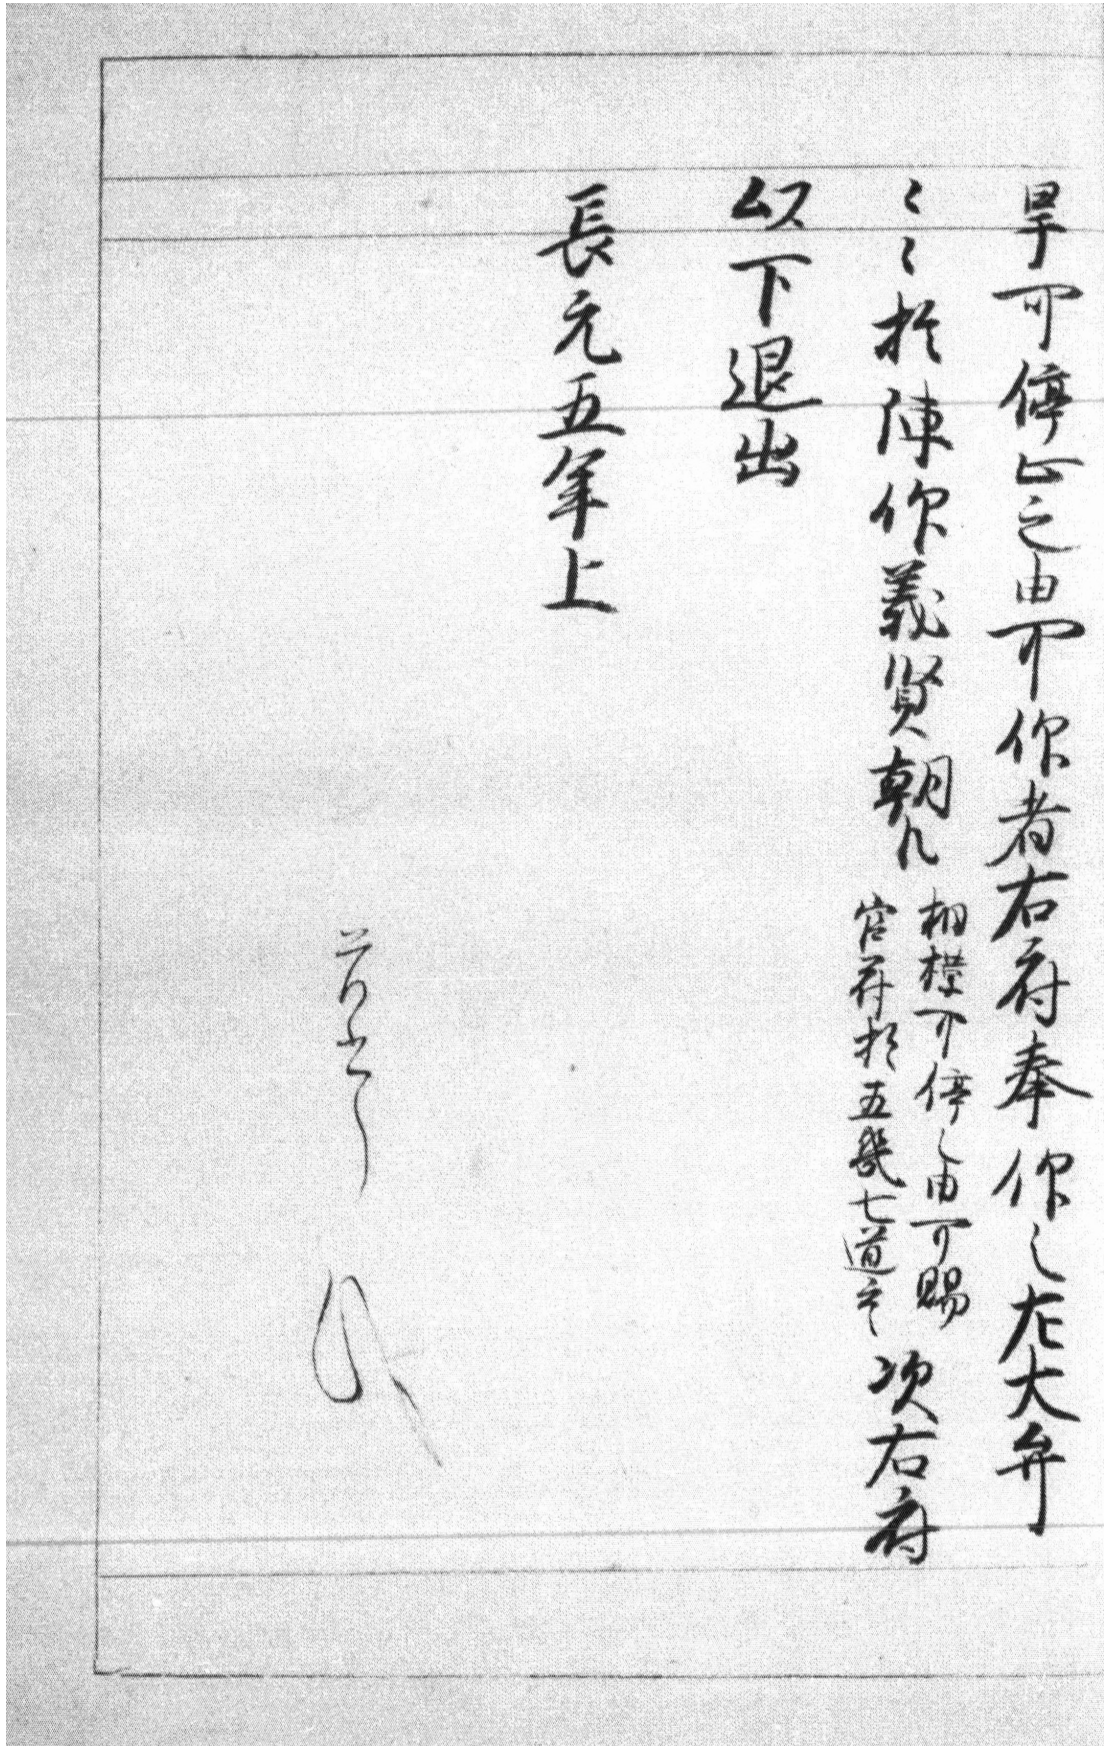 旱可停止之由可仰者右府奉仰之左大弁
〻〻於陣仰義賢朝臣
相撲可停之由可賜
官符於五畿七道之
次右府
以下退出
長元五年上